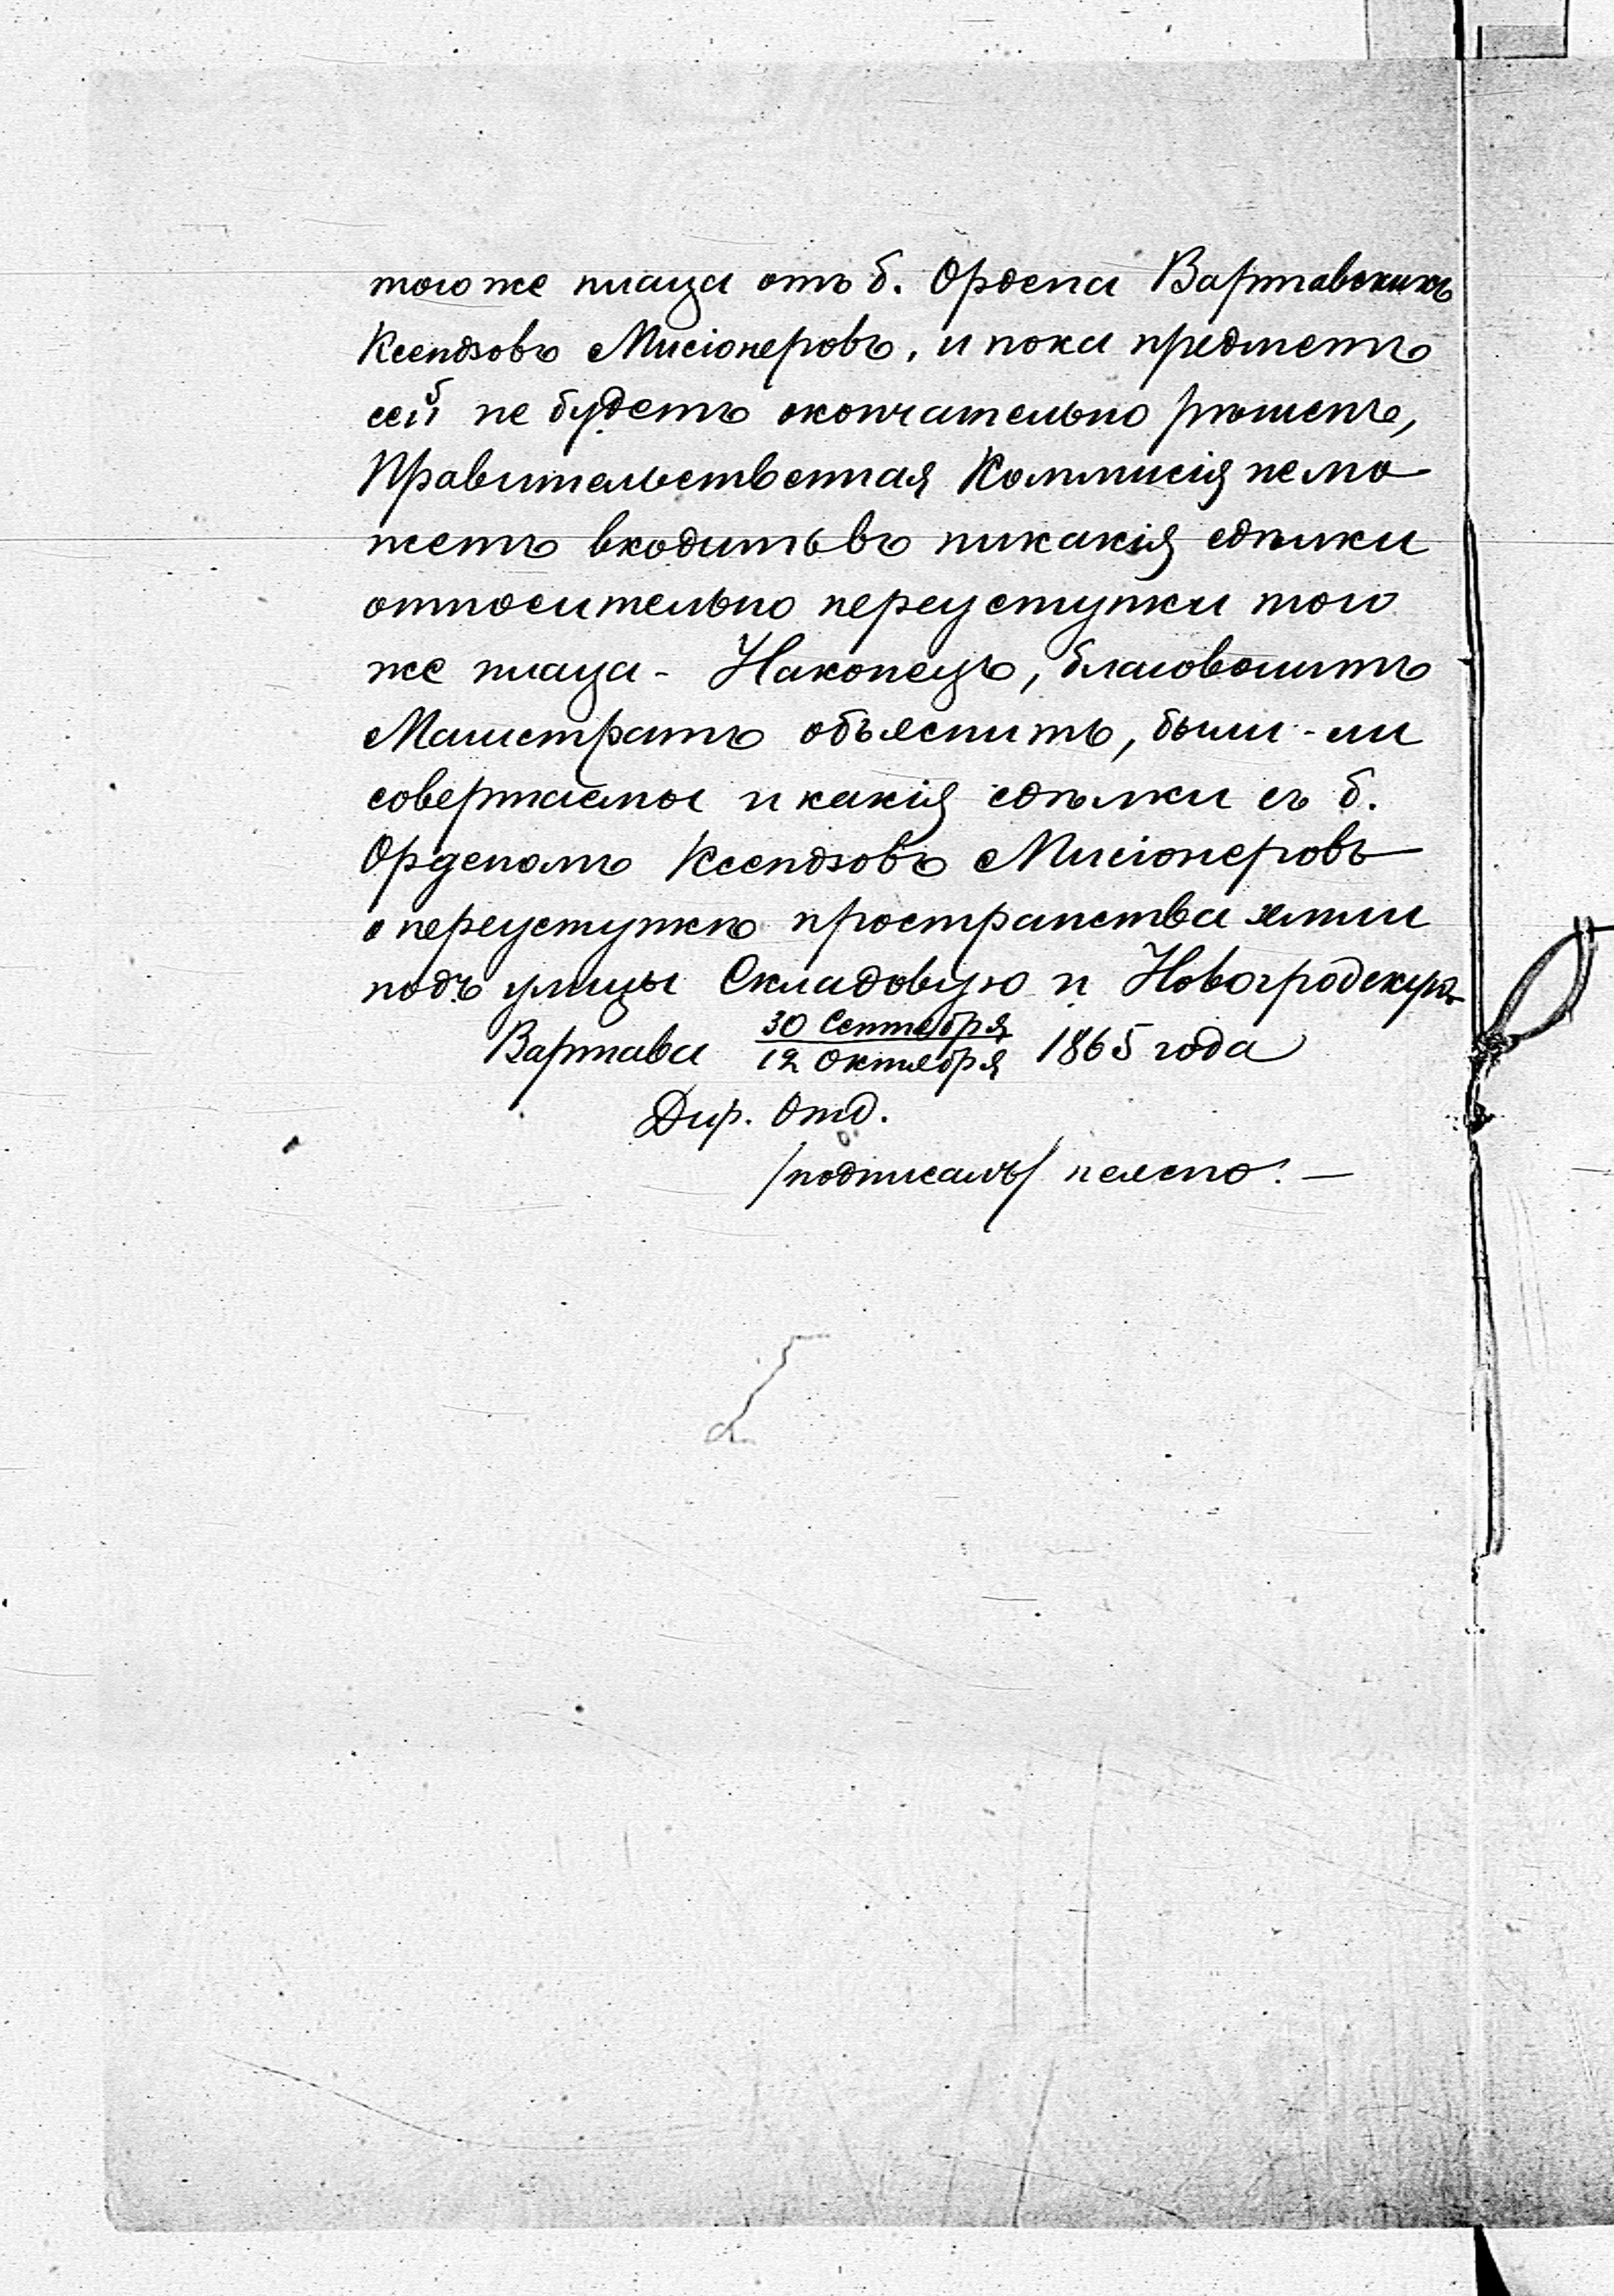 тогоже плаца отъ б. Ордена Варшавскихъ
Ксендзовъ Мисіонеровъ, и пока предметъ
сей не будетъ окончательно рѣшенъ,
Правительственная Коммисія не мо
жетъ входить въ никакія сдѣлки
относительно переуступки того
же плаца - Наконецъ, благоволитъ
Магистратъ объяснить, были-ли
совершаемы и какія сдѣлки съ б.
Орденомъ Ксендзовъ Мисіонеровъ
о переуступкѣ пространства земли
подъ улицы Складовую и Новогродскую
Варшава 30 Сентября / 12 Октября 1865 года
Дир. Отд.
/подписалъ/ неясно. —